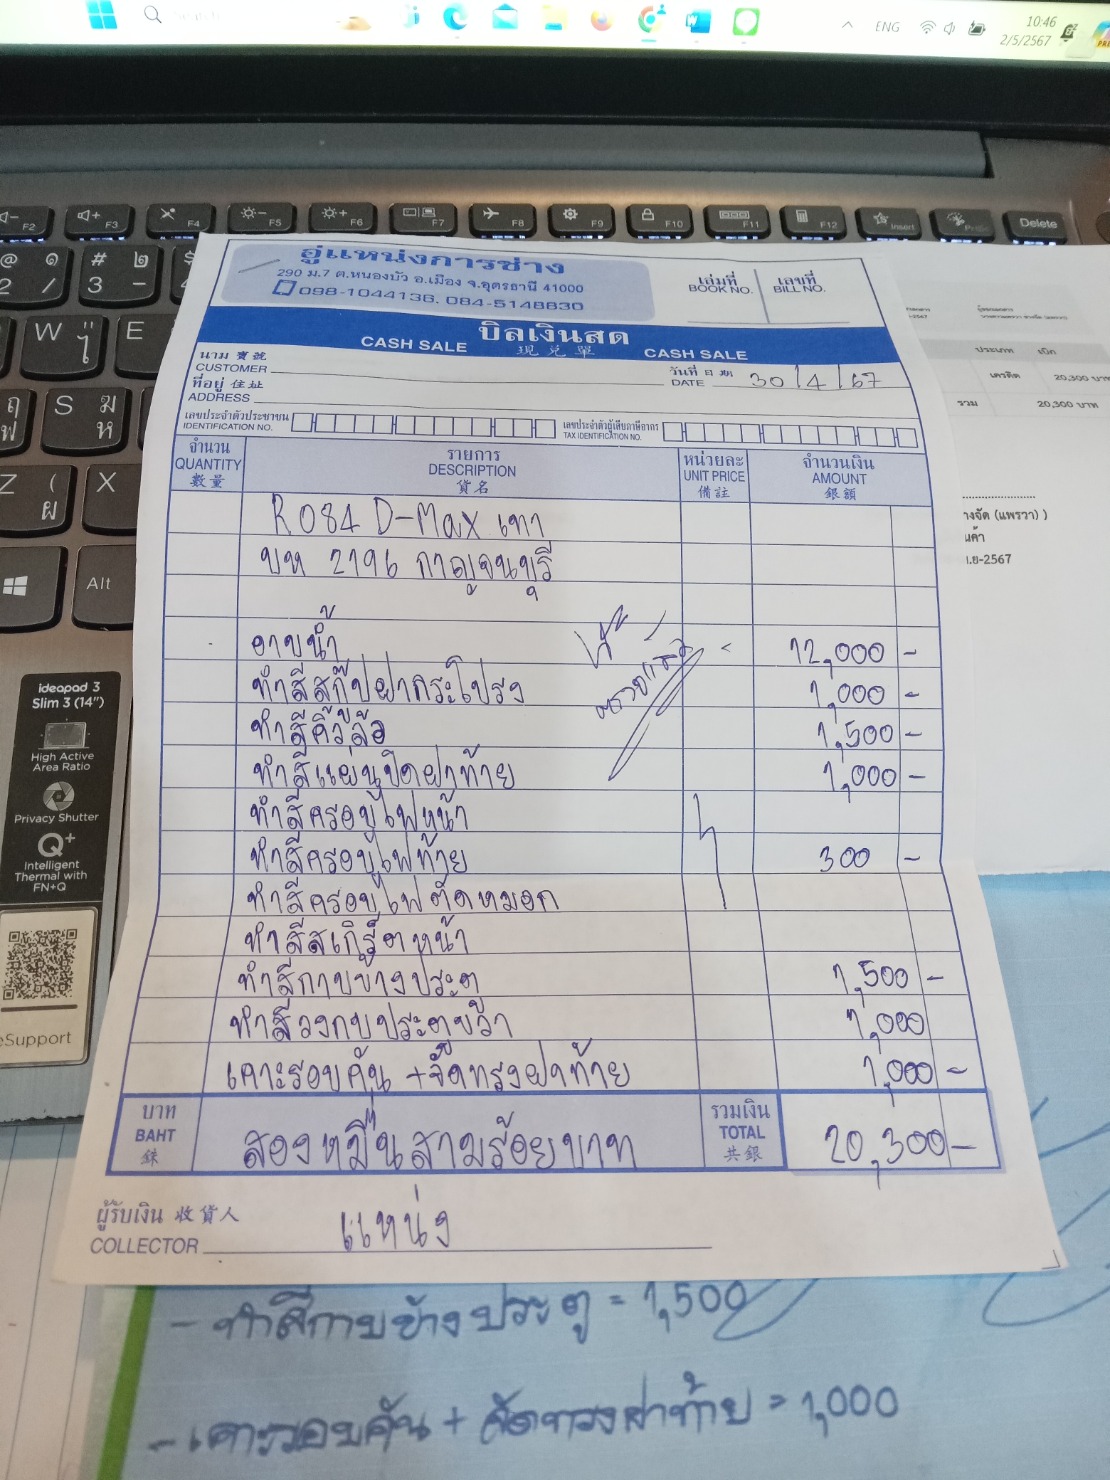 Search
ENG
10:46
2/5/2567
F2 F3 F4 F5 F6 F7 F8 F9 F10 F11 F12 Insert Delete
อู่แหน่งการช่าง
290 ม.7 ต.หนองบัว อ.เมือง จ.อุดรธานี 41000
098-1044136, 084-5148830
เล่มที่ เลขที่
BOOK NO. BILL NO.
บิลเงินสด
CASH SALE 現兌單 CASH SALE
นาม 寶號
CUSTOMER
วันที่ 日期
DATE 30/4/67
ที่อยู่ 住址
ADDRESS
เลขประจำตัวประชาชน
IDENTIFICATION NO.
เลขประจำตัวผู้เสียภาษีอากร
TAX IDENTIFICATION NO.
จำนวน รายการ หน่วยละ จำนวนเงิน
QUANTITY DESCRIPTION UNIT PRICE AMOUNT
數量 貨名 備註 銀額
R084 D-Max เทา
บท 2196 กาญจนบุรี
อาบน้ำ 12,000 -
ทำสีสกู๊ปฝากระโปรง 1,000 -
ทำสีคิ้วล้อ 1,500 -
ทำสีแผ่นปิดฝาท้าย 1,000 -
ทำสีครอบไฟหน้า
ทำสีครอบไฟท้าย 300 -
ทำสีครอบไฟตัดหมอก
ทำสีสเกิร์ตหน้า
ทำสีกาบข้างประตู 1,500 -
ทำสีวงกบประตูขวา 1,000
เคาะรอบคัน + จัดทรงฝาท้าย 1,000 -
บาท
BAHT
銖
สองหมื่นสามร้อยบาท
รวมเงิน
TOTAL
共銀
20,300 -
ผู้รับเงิน 收貨人
COLLECTOR แหน่ง
- ทำสีกาบข้างประตู = 1,500
- เคาะรอบคัน + จัดทรงฝาท้าย = 1,000
ประเภท ชนิด
เครดิต 20,300 บาท
รวม 20,300 บาท
(แพรวา) )
-2567
W
E
S
Z
X
Alt
ideapad 3
Slim 3 (14")
High Active
Area Ratio
Privacy Shutter
Q+
Intelligent
Thermal with
FN+Q
eSupport